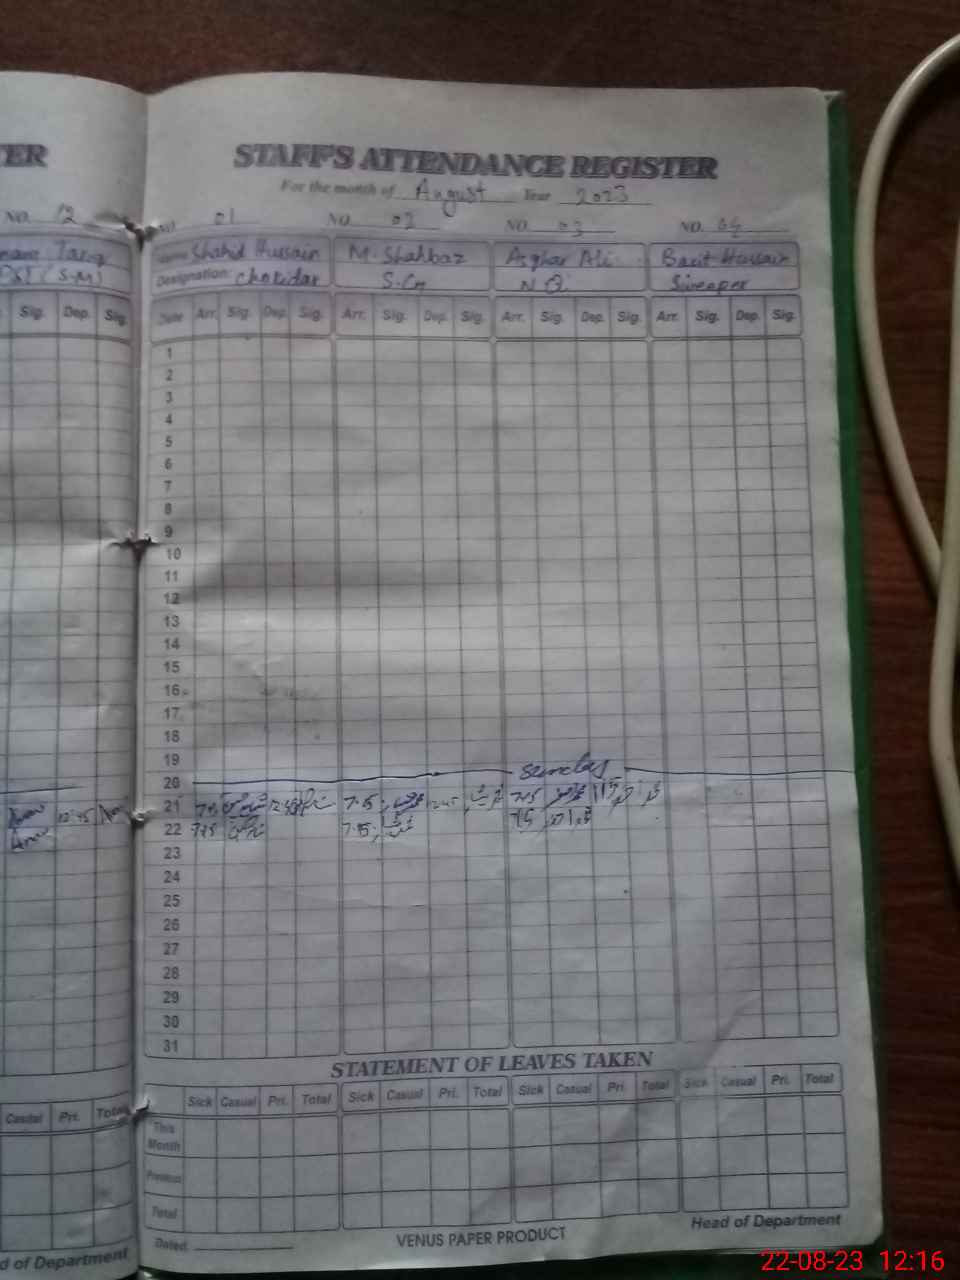 ER
STAFF'S ATTENDANCE REGISTER
For the month of August Year 2023
NO. 12 NO. 01 NO. 02 NO. 03 NO. 04
Name Shahid Hussain M. Shahbaz Asghar Ali Barit Hussain
(S.M) Designation: Chokidar N Q Sweeper
Sig. Dep. Sig. Date Arr. Sig. Dep. Sig. Arr. Sig. Dep. Sig. Arr. Sig. Dep. Sig. Arr. Sig. Dep. Sig.
1
2
3
4
5
6
7
8
9
10
11
12
13
14
15
16
17
18
19
20 Sunday
12:45 21 7:45 7:45 12:45 7:45
22 7:45 7:45
23
24
25
26
27
28
29
30
31
STATEMENT OF LEAVES TAKEN
Casual Pri. Total Sick Casual Pri. Total Sick Casual Pri. Total Sick Casual Pri. Total Sick Casual Pri. Total
This Month
Previous
Total
d of Department Dated: VENUS PAPER PRODUCT Head of Department
22-08-23 12:16